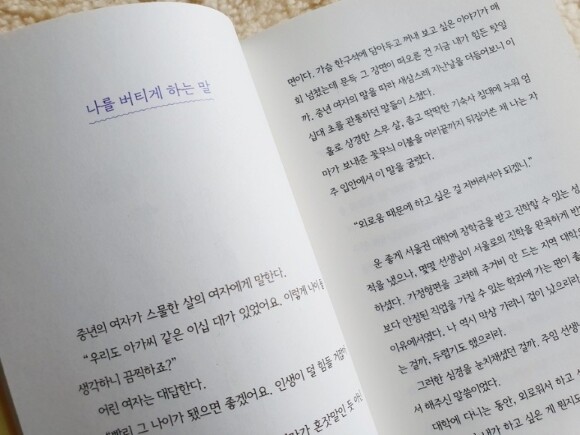 나를 버티게 하는 말
중년의 여자가 스물한 살의 여자에게 말한다.
"우리도 아가씨 같은 이십 대가 있었어요. 이렇게 나이 들
생각하니 끔찍하죠?"
어린 여자는 대답한다.
그 나이가 됐으면 좋겠어요. 인생이 덜 힘들
혼잣말인 듯
면이다. 가슴 한구석에 담아두고 꺼내 보고 싶은 이야기가 매
회 넘쳤는데 문득 그 장면이 떠오른 건 지금 내가 힘든 탓일
까. 중년 여자의 말을 따라 새삼스레 지난날을 더듬어보니 이
십대 초를 관통하던 말들이 스쳤다.
홀로 상경한 스무 살, 좁고 딱딱한 기숙사 침대에 누워 엄
마가 보내준 꽃무늬 이불을 머리끝까지 뒤집어쓴 채 나는 자
주 입안에서 이 말을 굴렸다.
"외로움 때문에 하고 싶은 걸 저버려서야 되겠니."
운 좋게 서울권 대학에 장학금을 받고 진학할 수 있는 성
적을 냈으나, 몇몇 선생님이 서울로의 진학을 완곡하게 반
하셨다. 가정형편을 고려해 주거비 안 드는 지역 대학의
보다 안정된 직업을 가질 수 있는 학과에 가는 편이 좋
이유에서였다. 나 역시 막상 가려니 겁이 났으리라.
는 걸까, 두렵기도 했으리라.
그러한 심경을 눈치채셨던 걸까. 주임 선생
서 해주신 말씀이었다.
대학에 다니는 동안, 외로워서 하고
내가 하고 싶은 게 뭔지도